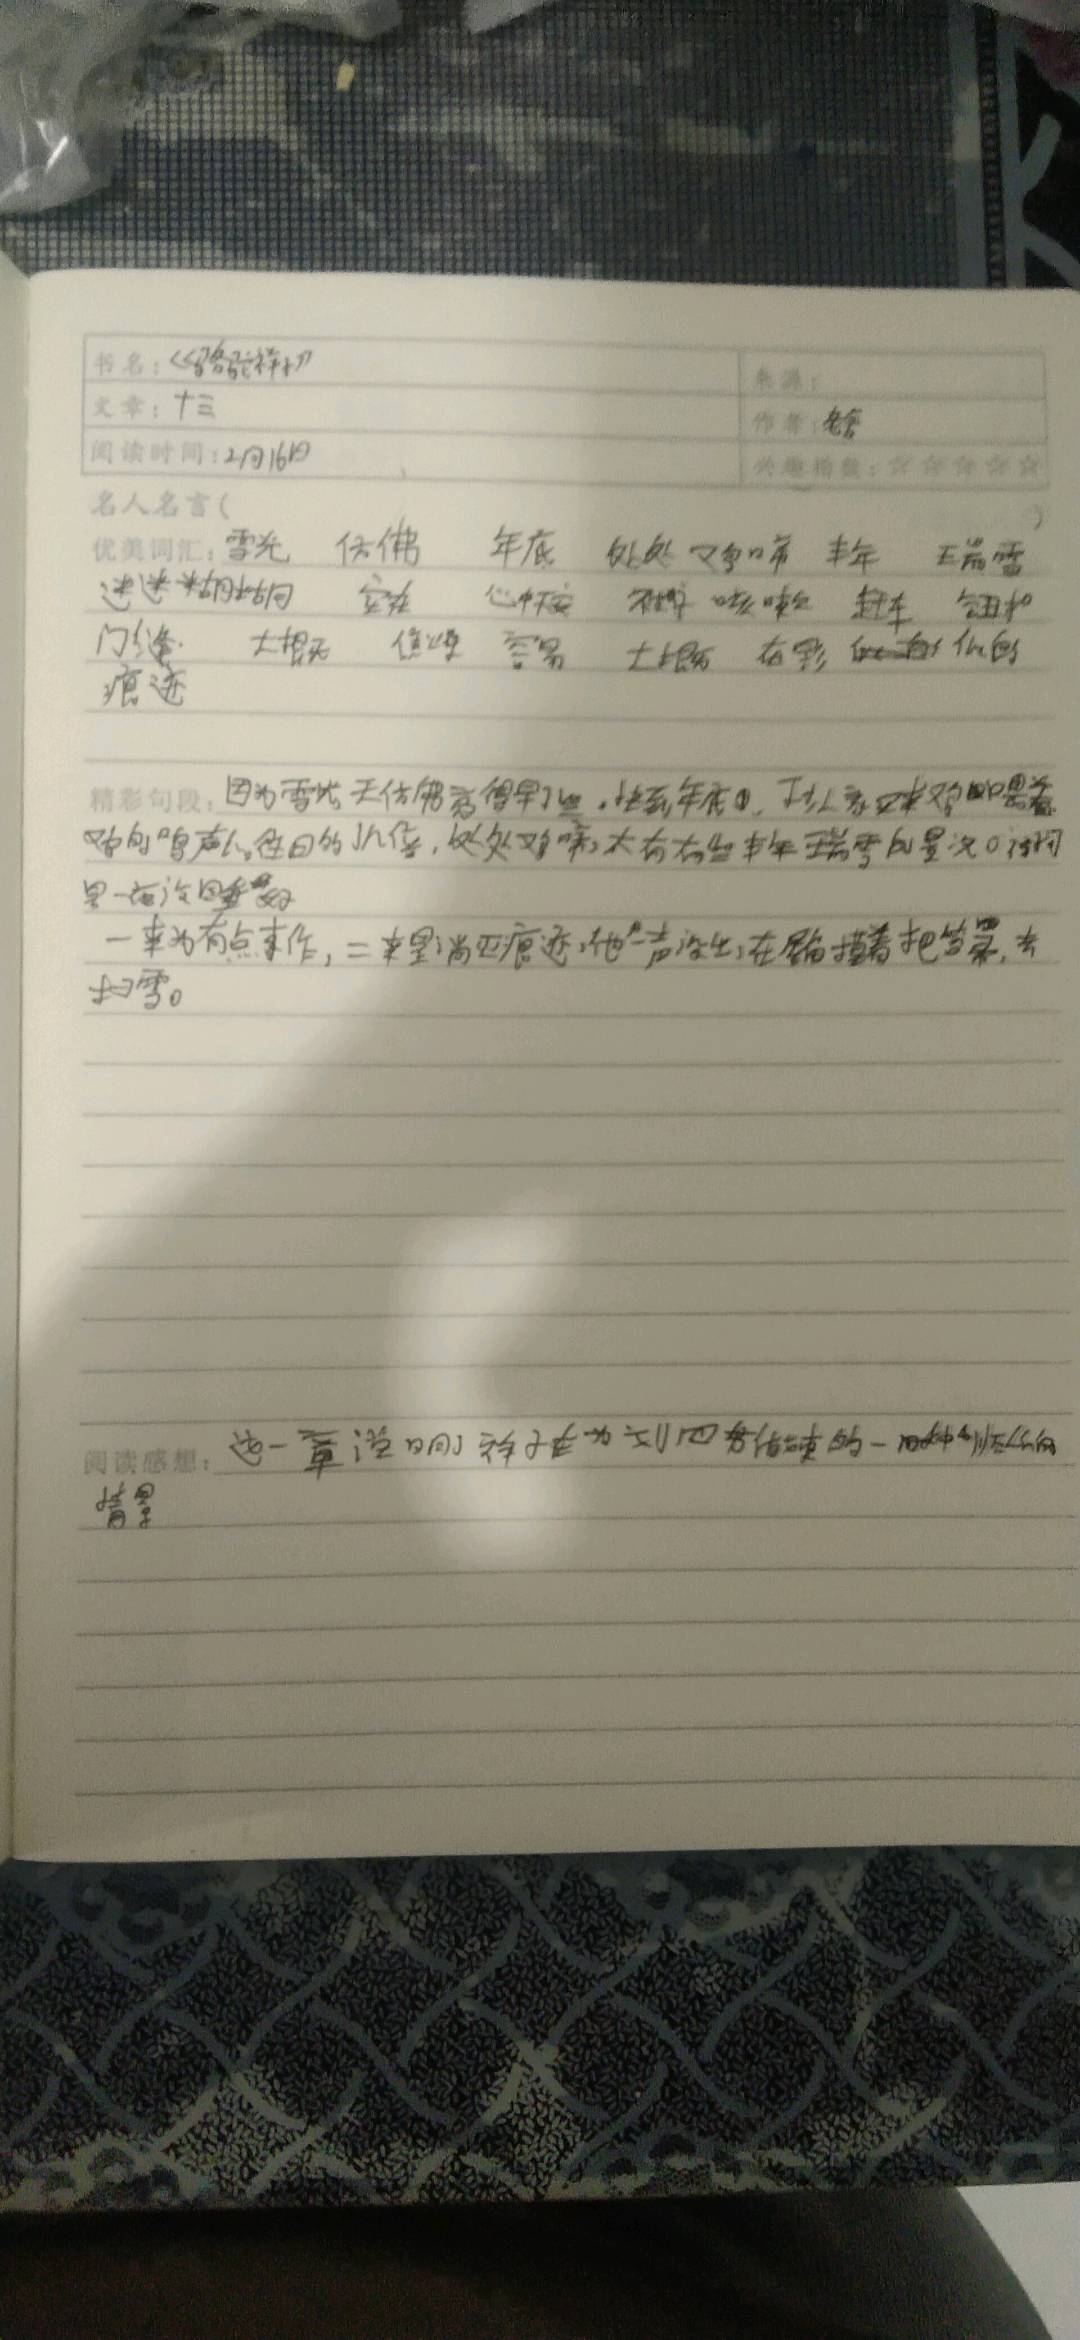 书名：《骆驼祥子》 来源：
文章：十三 作者：老舍
阅读时间：2月16日 兴趣指数：☆☆☆☆☆
名人名言（ ）
优美词汇：雪光 仿佛 年底 处处 鸡啼 丰年 瑞雪
迷迷糊糊 实在 心中 咳嗽 赶车
门缝 大概 容易 大概 在 仙的
痕迹
精彩句段：因为雪光天仿佛亮得早了些，快到年底，不少人家买来鸡喂着
鸡的鸣声比往日的几倍，处处鸡啼，大有些丰年瑞雪的景况。祥
一夜没睡好
一来为有点事作，二来是消灭痕迹，他一声没出，在屋摸着把笤帚，去
扫雪。
阅读感想：这一章说明了祥子在为刘四爷 的一
情景